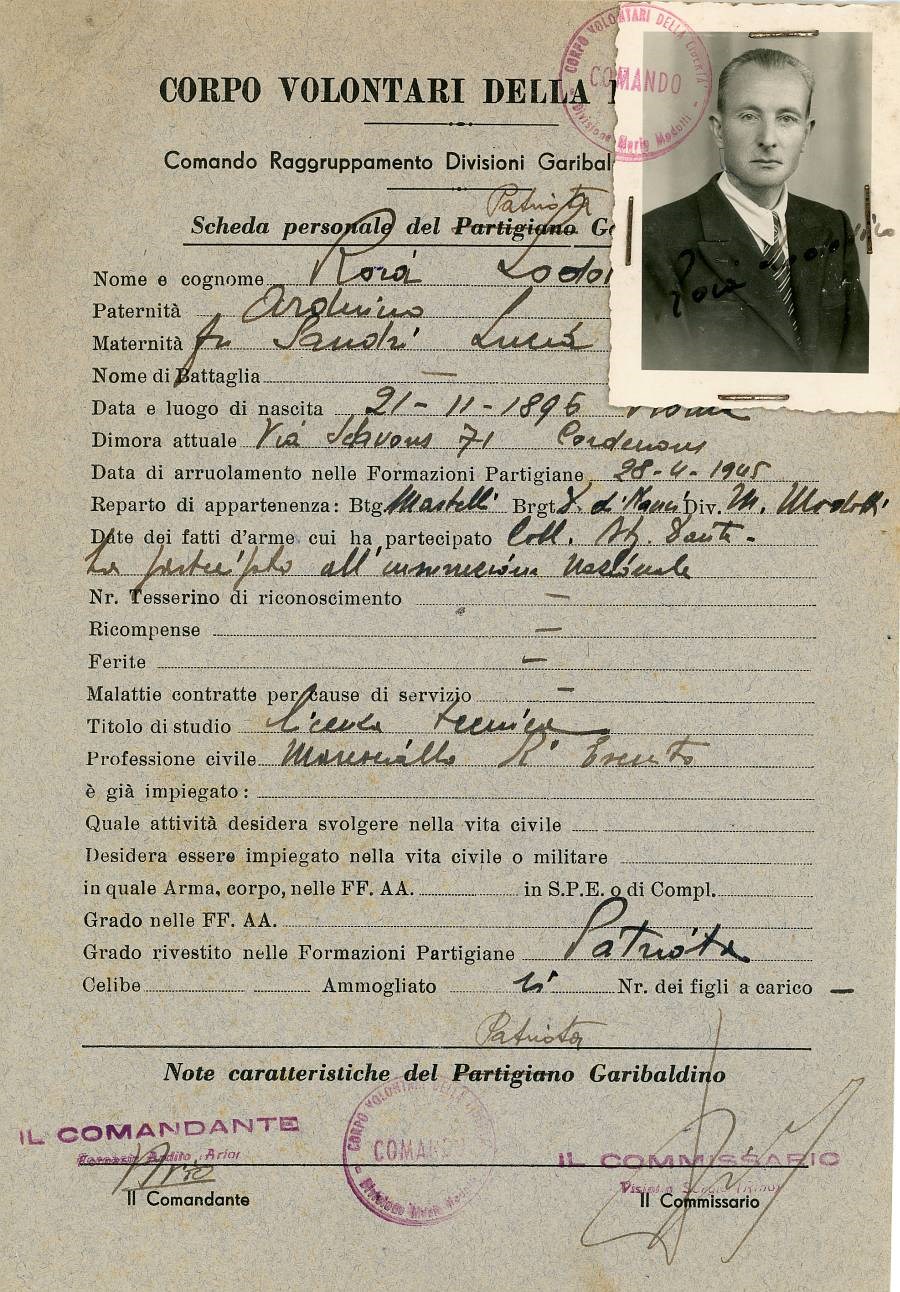 CORPO VOLONTARI DELLA
CORPO VOLONTARI DELLA LIBERTA'
COMANDO
Divisione Mario Modotti
Comando Raggruppamento Divisioni Garibal
Patriota
Scheda personale del Partigiano G
Nome e cognome Rorá Lodo
Paternità Arduino
Maternità fu Sandri Lucia
Nome di Battaglia —
Data e luogo di nascita 21-11-1896 Roma
Dimora attuale Via Sclavons 71 Cordenons
Data di arruolamento nelle Formazioni Partigiane 28-4-1945
Reparto di appartenenza: Btg. Martelli Brgt. di Nanni Div. M. Modotti
Date dei fatti d'arme cui ha partecipato Coll.
ha partecipato all'insurrezione Nazionale
Nr. Tesserino di riconoscimento —
Ricompense —
Ferite —
Malattie contratte per cause di servizio —
Titolo di studio licenza tecnica
Professione civile Maresciallo R. Esercito
è già impiegato:
Quale attività desidera svolgere nella vita civile
Desidera essere impiegato nella vita civile o militare
in quale Arma, corpo, nelle FF. AA. in S.P.E. o di Compl.
Grado nelle FF. AA.
Grado rivestito nelle Formazioni Partigiane Patriota
Celibe Ammogliato si Nr. dei figli a carico —
Patriota
Note caratteristiche del Partigiano Garibaldino
IL COMANDANTE
Ardito Ario
Ario
Il Comandante
CORPO VOLONTARI DELLA
COMANDO
Divisione Mario Modotti
IL COMMISSARIO
Il Commissario